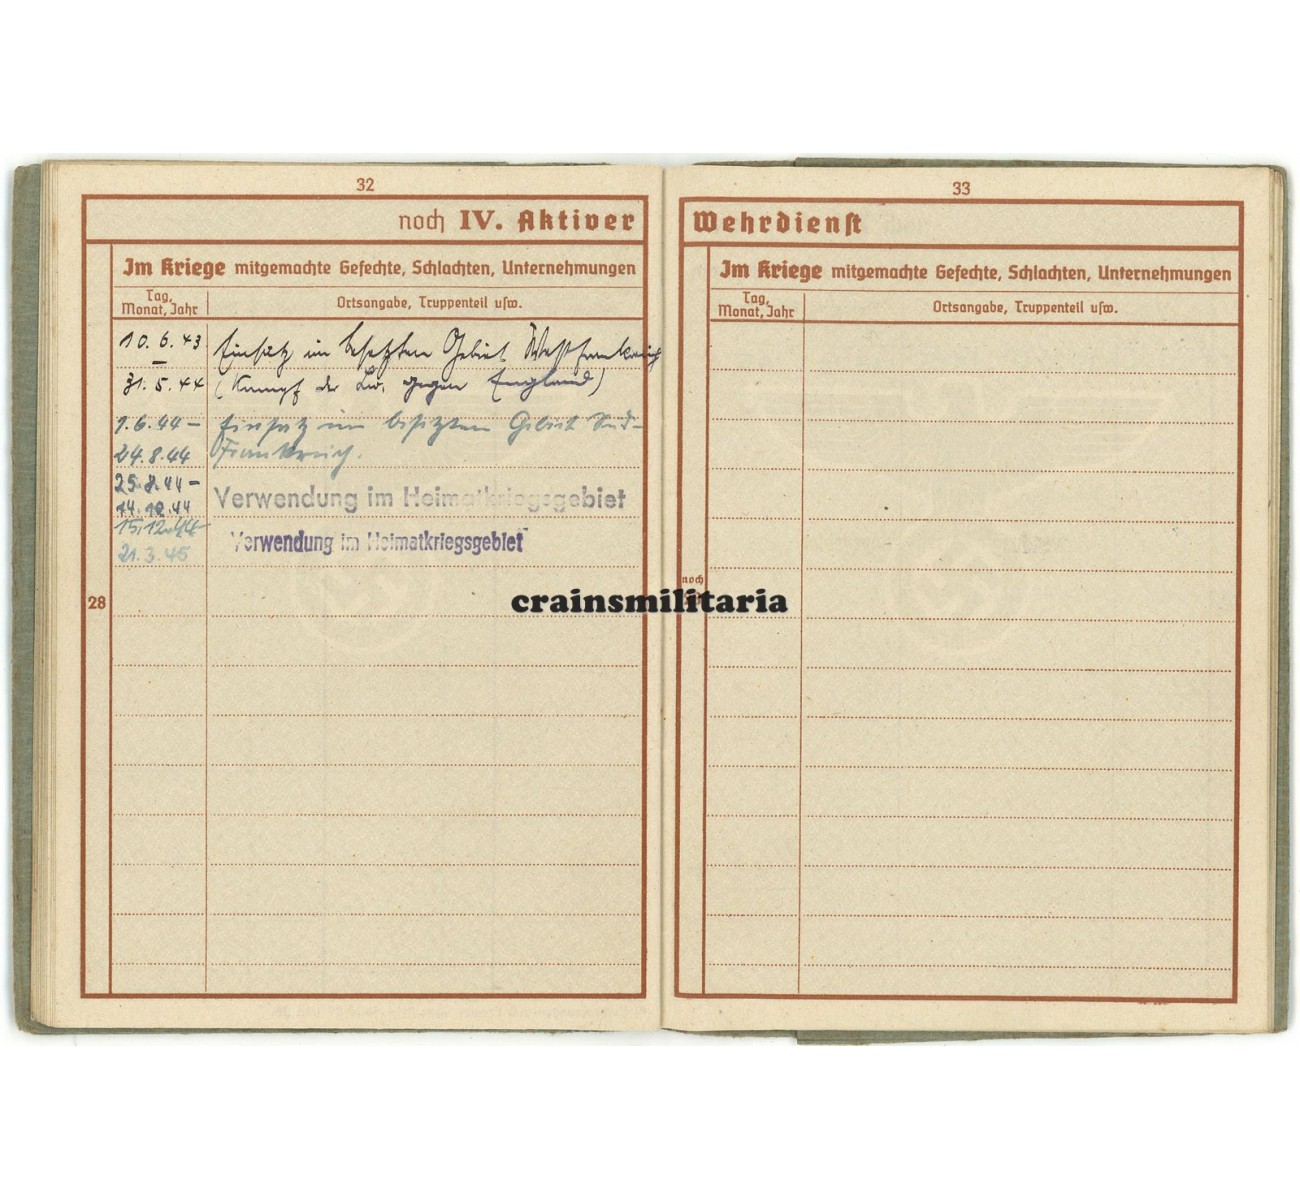 32
noch IV. Aktiver
Im Kriege mitgemachte Gefechte, Schlachten, Unternehmungen
Tag, Monat, Jahr
Ortsangabe, Truppenteil usw.
10.6.43 Einsatz im besetzten Gebiet Westfrankreich
–
31.5.44 (Kampf der Lw. gegen England)
1.6.44 – Einsatz im besetzten Gebiet Süd-
24.8.44 Frankreich.
25.8.44 –
14.12.44 Verwendung im Heimatkriegsgebiet
15.12.44 –
21.3.45 Verwendung im Heimatkriegsgebiet
28
33
Wehrdienst
Im Kriege mitgemachte Gefechte, Schlachten, Unternehmungen
Tag, Monat, Jahr
Ortsangabe, Truppenteil usw.
noch
crainsmilitaria